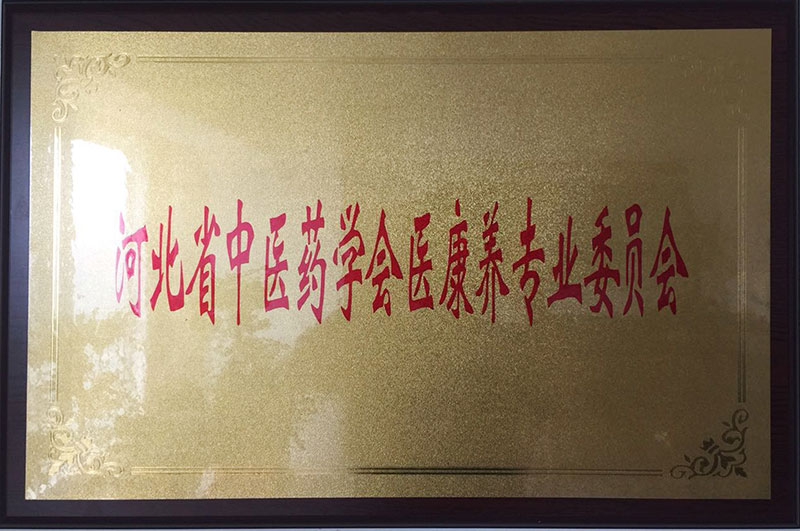 河北省中医药学会医康养专业委员会